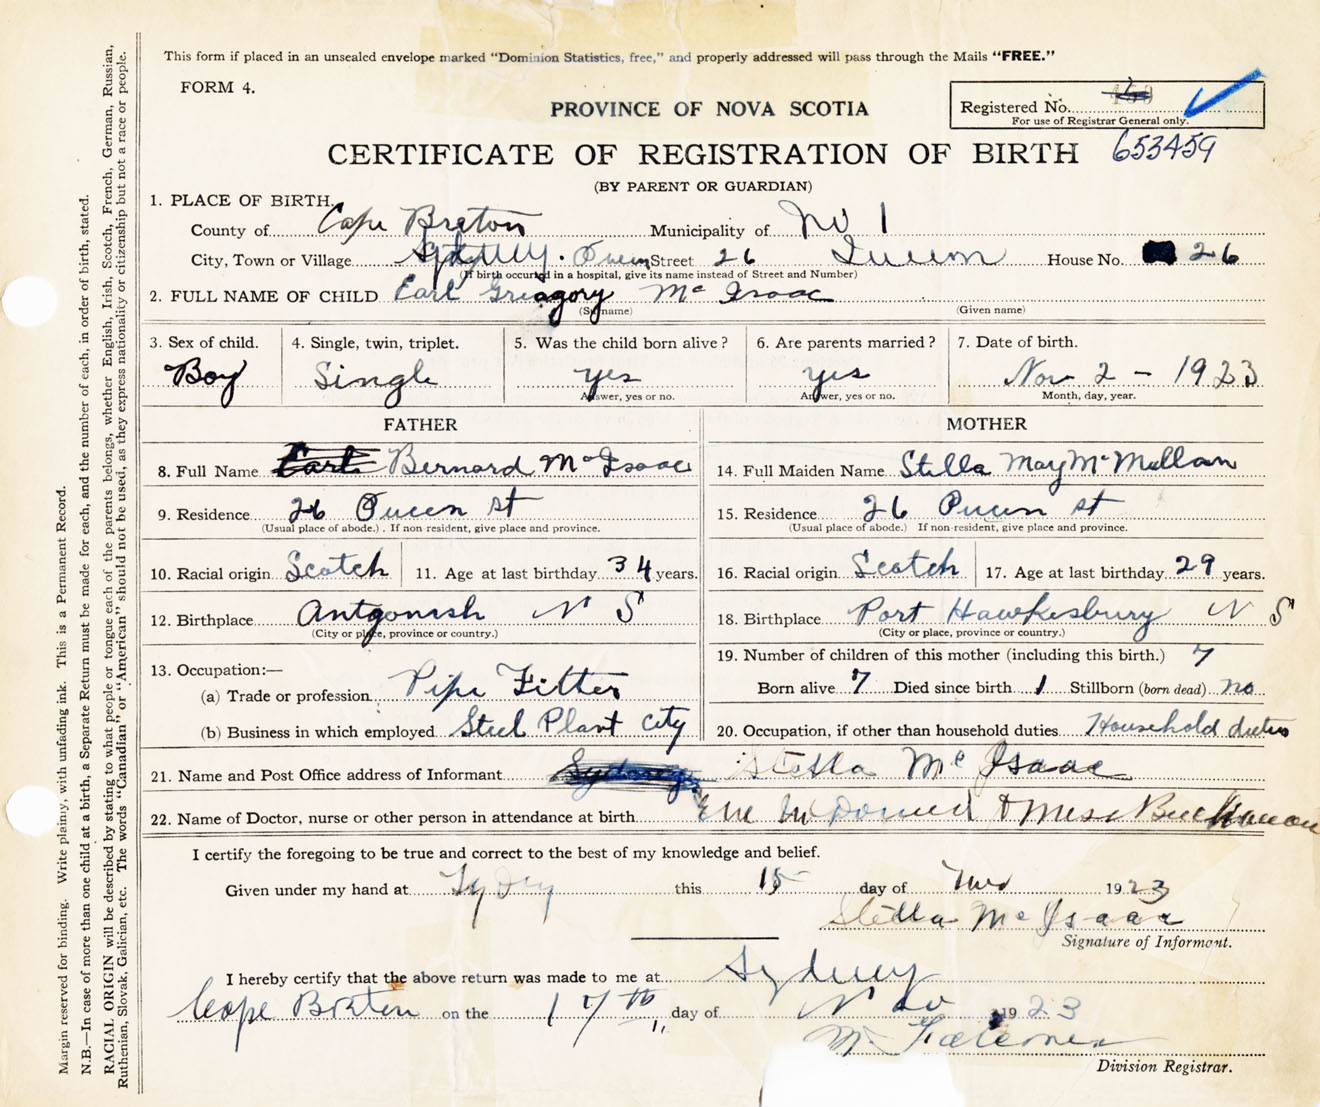 This form if placed in an unsealed envelope marked "Dominion Statistics, free," and properly addressed will pass through the Mails "FREE."
FORM 4.
PROVINCE OF NOVA SCOTIA
Registered No.
For use of Registrar General only.
CERTIFICATE OF REGISTRATION OF BIRTH 653459
(BY PARENT OR GUARDIAN)
1. PLACE OF BIRTH.
County of Cape Breton Municipality of No 1
City, Town or Village Sydney. Queen Street 26 Queen House No. 26
(If birth occurred in a hospital, give its name instead of Street and Number)
2. FULL NAME OF CHILD Earl Griagory Mc Isaac
(Surname) (Given name)
3. Sex of child. 4. Single, twin, triplet. 5. Was the child born alive? 6. Are parents married? 7. Date of birth.
Boy Single yes yes Nov 2 - 1923
Answer, yes or no. Answer, yes or no. Month, day, year.
FATHER MOTHER
8. Full Name Earl Bernard Mc Isaac 14. Full Maiden Name Stella May Mc Mullan
9. Residence 26 Queen st 15. Residence 26 Queen st
(Usual place of abode.) If non-resident, give place and province. (Usual place of abode.) If non-resident, give place and province.
10. Racial origin Scotch 11. Age at last birthday 34 years. 16. Racial origin Scotch 17. Age at last birthday 29 years.
12. Birthplace Antgonish N S 18. Birthplace Port Hawkesbury N S
(City or place, province or country.) (City or place, province or country.)
13. Occupation:— 19. Number of children of this mother (including this birth.) 7
(a) Trade or profession Pipe Fitter Born alive 7 Died since birth 1 Stillborn (born dead) no
(b) Business in which employed Steel Plant city 20. Occupation, if other than household duties Household duties
21. Name and Post Office address of Informant Sydney Stella Mc Isaac
22. Name of Doctor, nurse or other person in attendance at birth Mc Donald & Miss Buchanan
I certify the foregoing to be true and correct to the best of my knowledge and belief.
Given under my hand at Sydney this 15 day of Nov 1923
Stella Mc Isaac
Signature of Informant.
I hereby certify that the above return was made to me at Sydney
Cape Breton on the 17th day of Nov 1923
Division Registrar.
Margin reserved for binding. Write plainly, with unfading ink. This is a Permanent Record.
N.B.—In case of more than one child at a birth, a Separate Return must be made for each, and the number of each, in order of birth, stated.
RACIAL ORIGIN will be described by stating to what people or tongue each of the parents belongs, whether English, Irish, Scotch, French, German, Russian,
Ruthenian, Slovak, Galician, etc. The words "Canadian" or "American" should not be used, as they express nationality or citizenship but not a race or people.